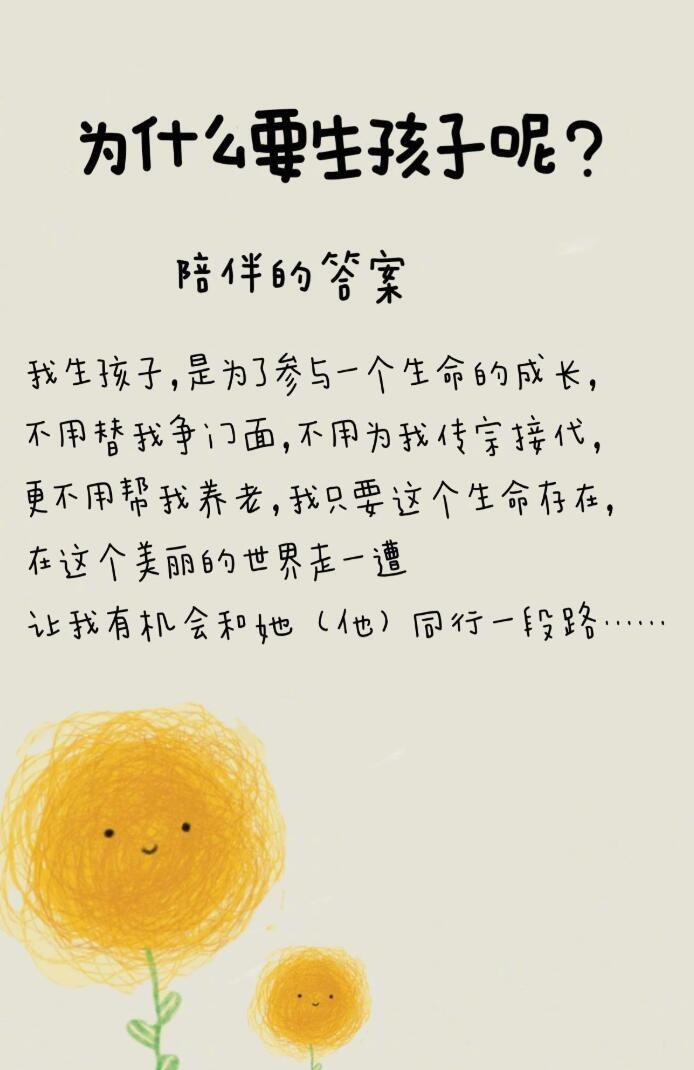 为什么要生孩子呢?
陪伴的答案
我生孩子,是为了参与一个生命的成长,
不用替我争门面,不用为我传宗接代,
更不用帮我养老,我只要这个生命存在,
在这个美丽的世界走一遭
让我有机会和她(他)同行一段路……